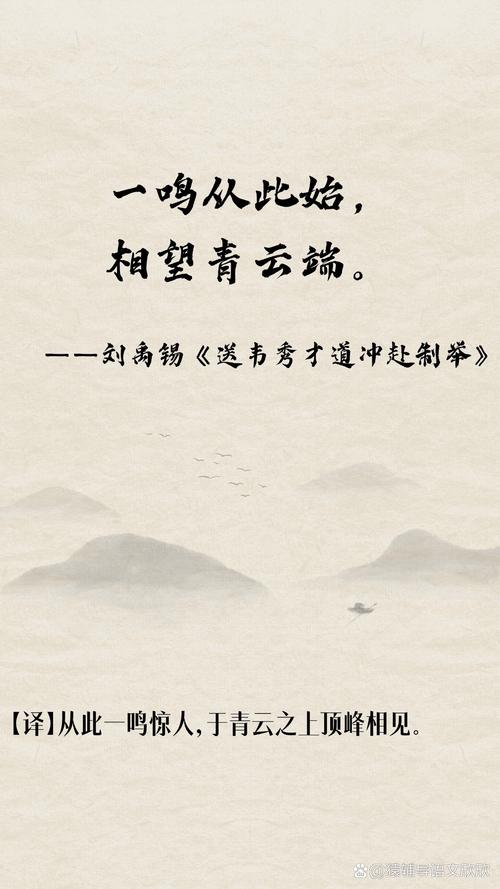 一鸣从此始，
相望青云端。
——刘禹锡《送韦秀才道冲赴制举》
【译】从此一鸣惊人，于青云之上顶峰相见。
猿辅导语文欣欣